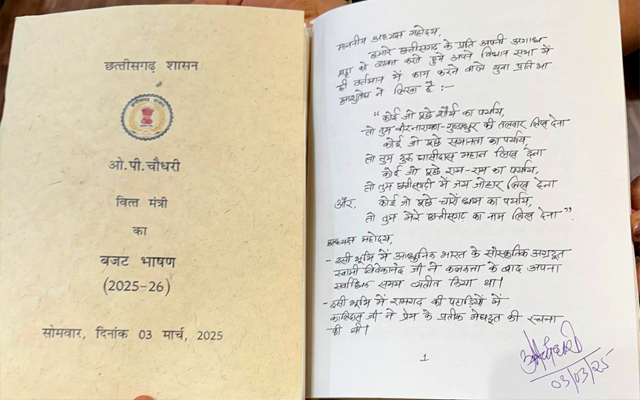 छत्तीसगढ़ शासन
ओ.पी.चौधरी
वित्त मंत्री
का
बजट भाषण
(2025-26)
सोमवार, दिनांक 03 मार्च, 2025
माननीय अध्यक्ष महोदय,
हमारे छत्तीसगढ़ के प्रति अपनी अगाध
श्रद्धा को व्यक्त करते हुये अपने विधान सभा में
ही वर्तमान में काम करने वाले युवा प्रतिभा
आशुतोष ने लिखा है :-
"कोई जो पूछे शौर्य का पर्याय,
तो तुम वीरनारायण-गुण्डाधुर की तलवार लिख देना
कोई जो पूछे समानता का पर्याय,
तो तुम गुरु घासीदास महान लिख देना
कोई जो पूछे राम-राम का पर्याय,
तो तुम छत्तीसगढ़ी में जय जोहार लिख देना
और, कोई जो पूछे चारों धाम का पर्याय,
तो तुम मेरे छत्तीसगढ़ का नाम लिख देना".
अध्यक्ष महोदय,
- इसी भूमि में आधुनिक भारत के सांस्कृतिक अग्रदूत
स्वामी विवेकानंद जी ने कलकत्ता के बाद अपना
सर्वाधिक समय व्यतीत किया था।
- इसी भूमि में रामगढ़ की पहाड़ियों में
कालिदास जी ने प्रेम के प्रतीक मेघदूत की रचना
की थी।
1
03/03/25